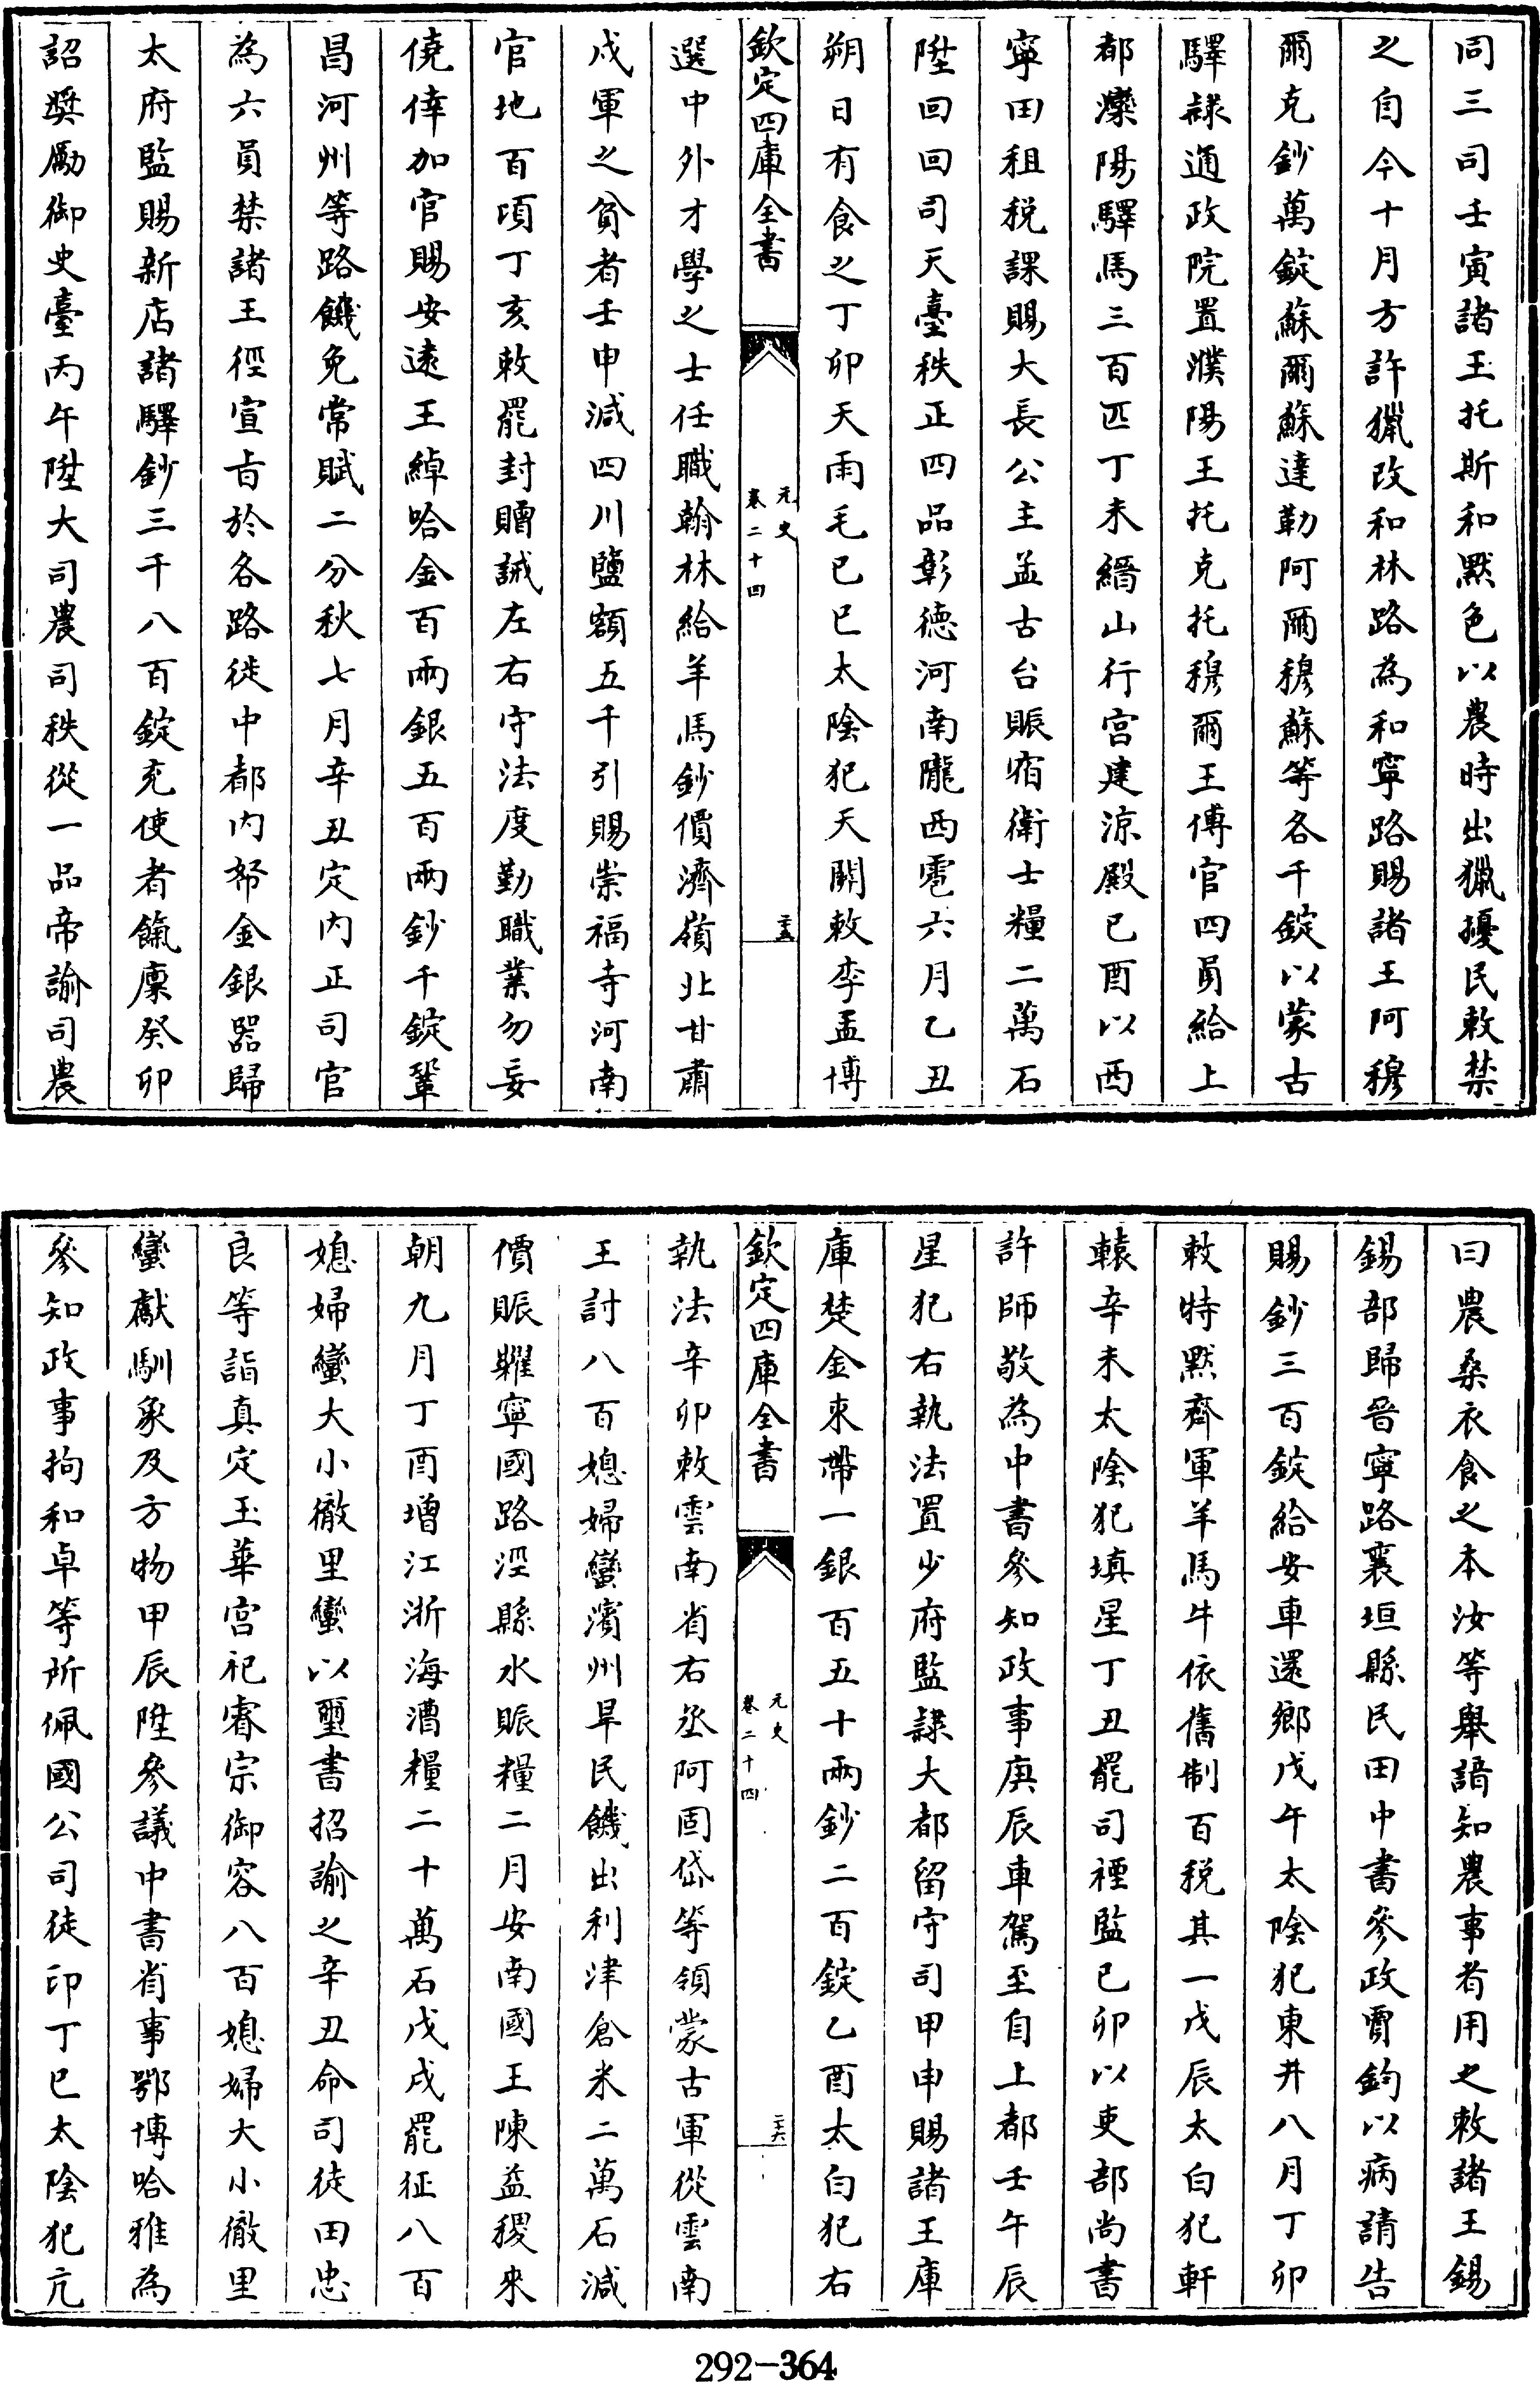 同三司壬寅諸王托斯和黙色以農時出獵擾民敕禁
之自今十月方許獵改和林路為和寧路賜諸王阿穆
爾克鈔萬錠蘇爾蘇達勒阿爾穆蘇等各千錠以蒙古
驛隷通政院置濮陽王托克托穆爾王傅官四員給上
都灤陽驛馬三百匹丁未縉山行宫建涼殿己酉以西
寧田租税課賜大長公主孟古台賑宿衛士糧二萬石
陞回回司天臺秩正四品彰德河南隴西雹六月乙丑
朔日有食之丁卯天雨毛己巳太陰犯天關敕李孟博
欽定四庫全書
元史
卷二十四
二五
選中外才學之士任職翰林給羊馬鈔價濟嶺北甘肅
戍軍之貧者壬申減四川鹽額五千引賜崇福寺河南
官地百頃丁亥敕罷封贈誡左右守法度勤職業勿妄
僥倖加官賜安逺王綽哈金百兩銀五百兩鈔千錠鞏
昌河州等路饑免常賦二分秋七月辛丑定内正司官
為六員禁諸王徑宣㫖於各路徙中都内帑金銀器歸
太府監賜新店諸驛鈔三千八百錠充使者餼廩癸卯
詔奬勵御史臺丙午陞大司農司秩從一品帝諭司農
曰農桑衣食之本汝等舉諳知農事者用之敕諸王錫
錫部歸晉寧路襄垣縣民田中書參政賈鈞以病請告
賜鈔三百錠給安車還鄉戊午太陰犯東井八月丁卯
敕特黙齊軍羊馬牛依舊制百税其一戊辰太白犯軒
轅辛未太陰犯填星丁丑罷司禋監己卯以吏部尚書
許師敬為中書參知政事庚辰車駕至自上都壬午辰
星犯右執法置少府監隷大都留守司甲申賜諸王庫
庫楚金束帶一銀百五十兩鈔二百錠乙酉太白犯右
欽定四庫全書
元史
卷二十四
二六
執法辛卯敕雲南省右丞阿固岱等領蒙古軍從雲南
王討八百媳婦蠻濱州旱民饑出利津倉米二萬石減
價賑糶寧國路涇縣水賑糧二月安南國王陳益稷來
朝九月丁酉增江浙海漕糧二十萬石戊戌罷征八百
媳婦蠻大小徹里蠻以璽書招諭之辛丑命司徒田忠
良等詣真定玉華宫祀睿宗御容八百媳婦大小徹里
蠻獻馴象及方物甲辰陞參議中書省事鄂博哈雅為
參知政事拘和卓等所佩國公司徒印丁巳太陰犯亢
292-364